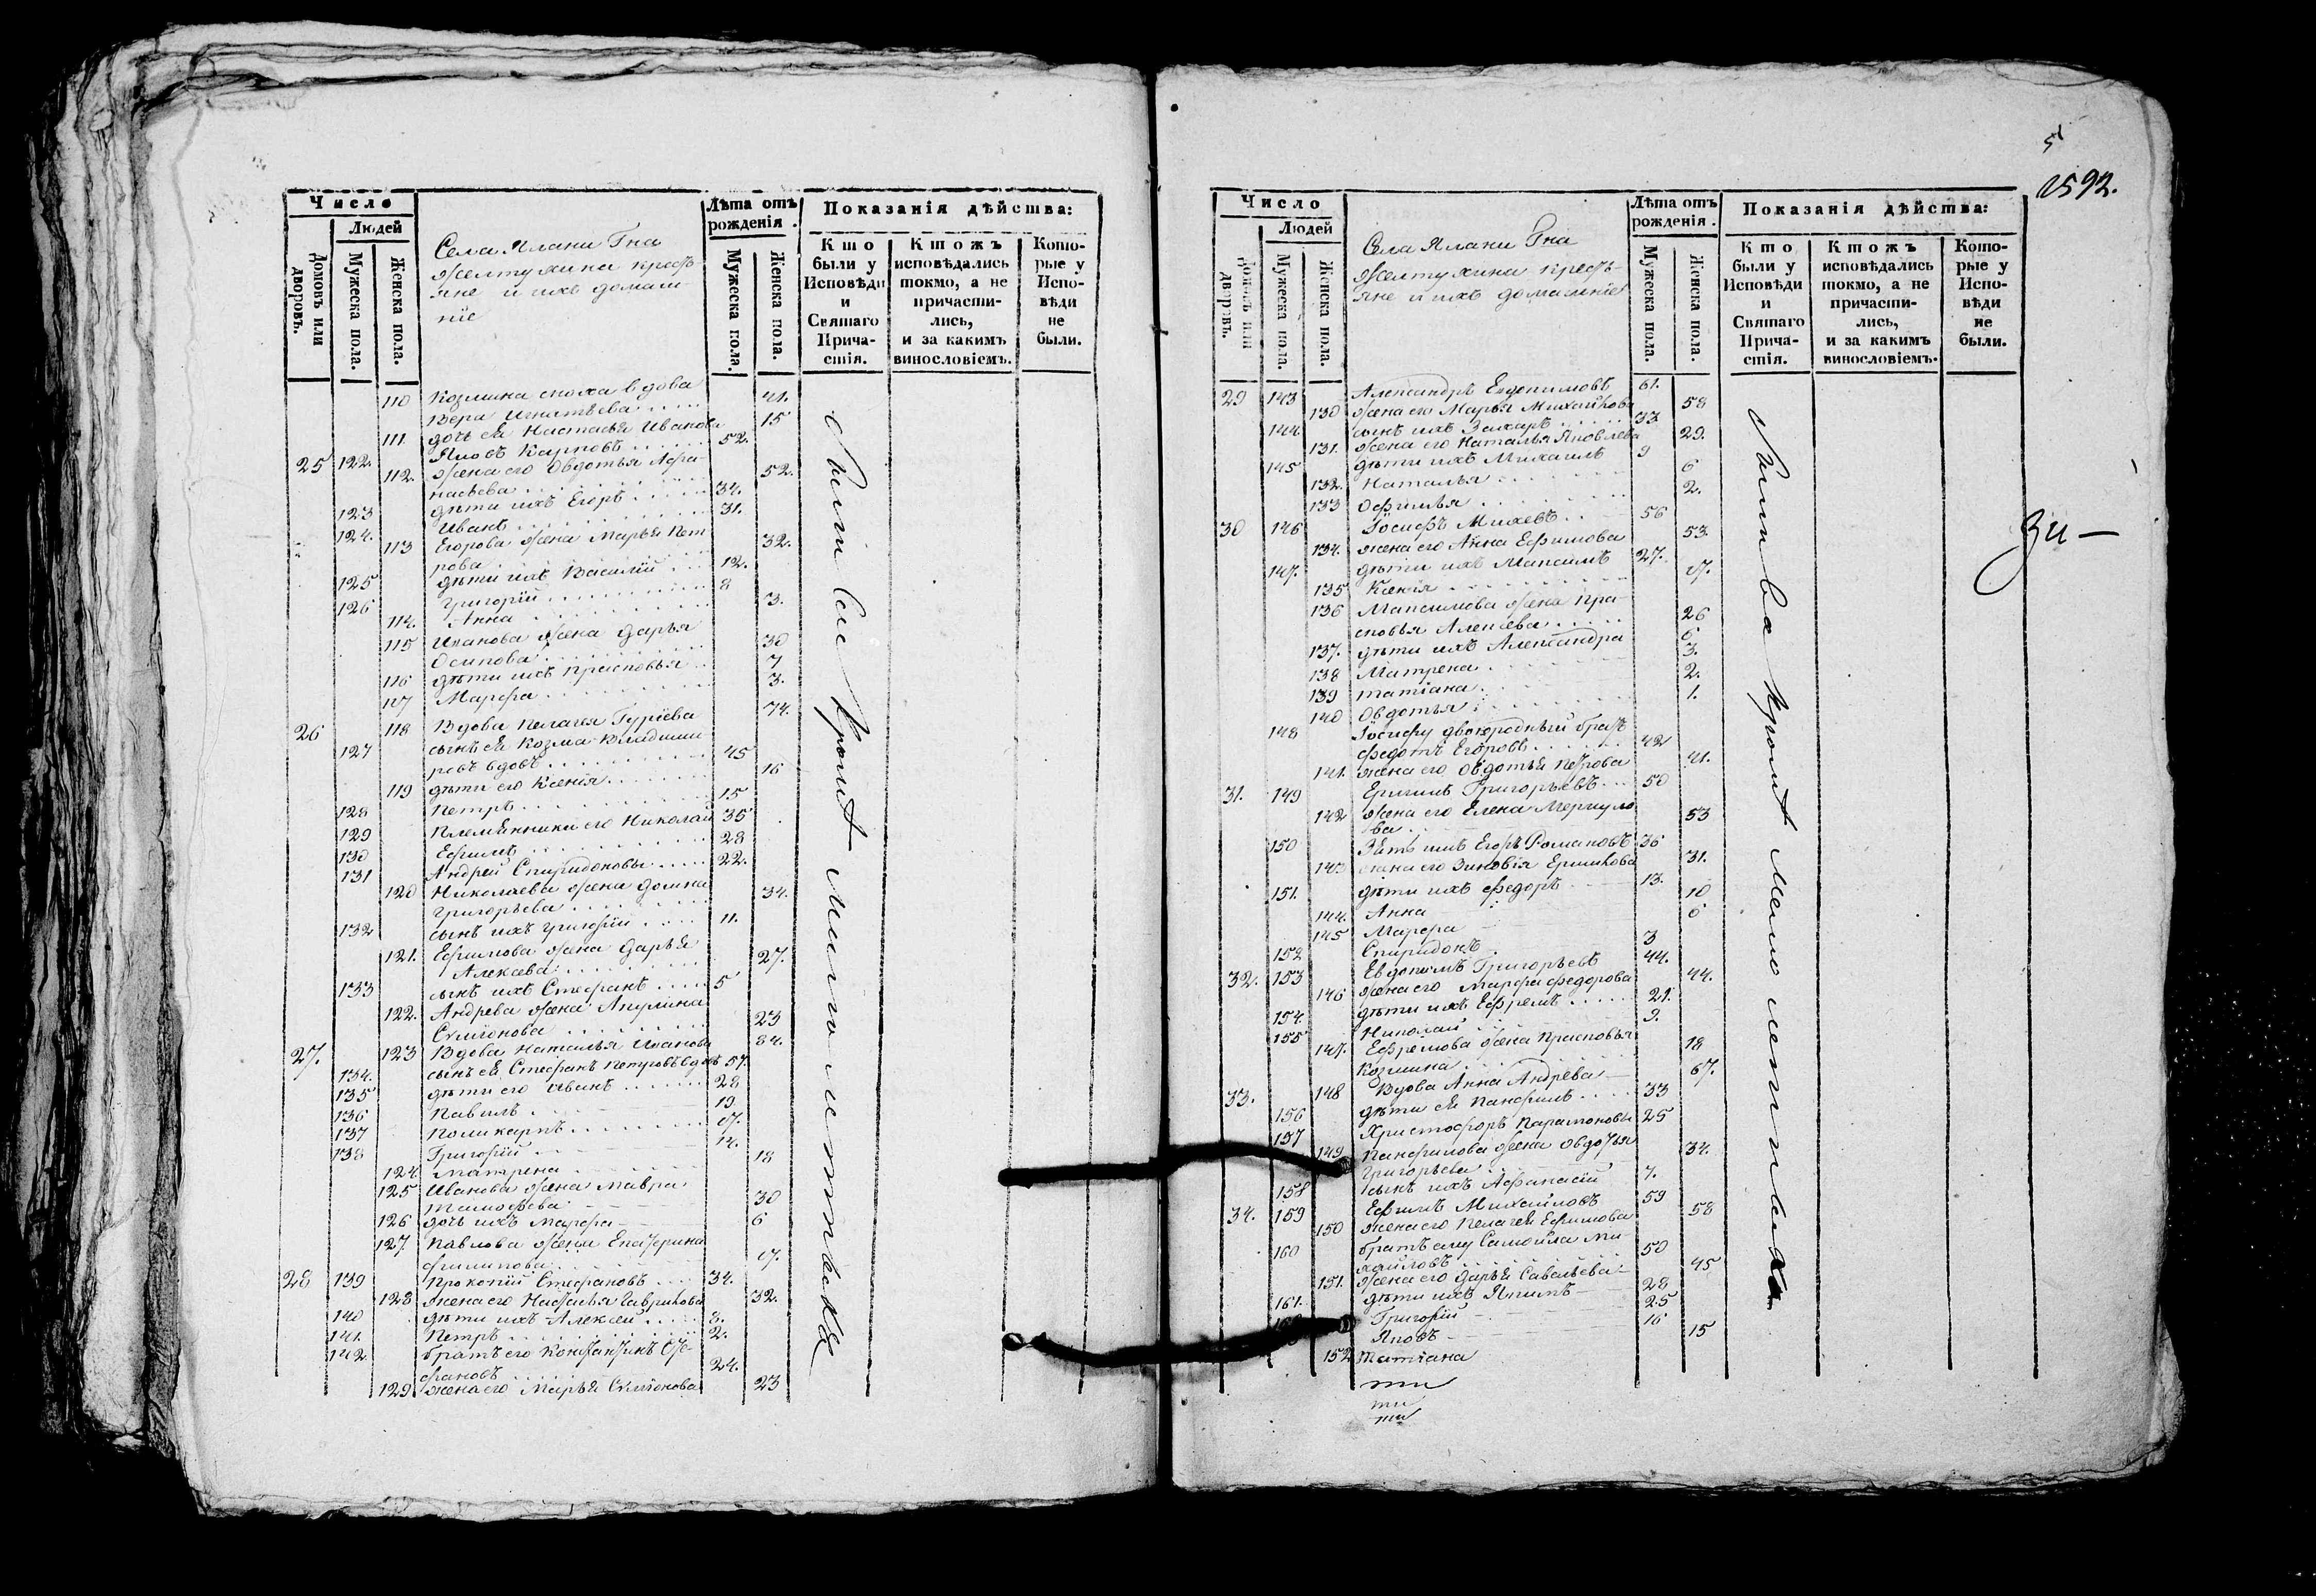 Число
Людей
Домовъ или дворовъ.
Мужеска пола.
Женска пола.
Села Плани Гна
Желтухина кресть-
яне и ихъ домаш-
ніе
Лѣта отъ рожденія.
Мужеска пола.
Женска пола.
Показанія дѣйства:
Кто были у Исповѣди и Святаго Прича-стія.
Ктожъ исповѣдались токмо, а не причасти-лись, и за какимъ винословіемъ.
Кото-рые у Испо-вѣди не были.
110 Козмина сноха вдова
Вера Игнатьева 41.
111. дочь ея Настасья Иванова 15
25 122. Яковъ Карповъ 52.
112. жена его Овдотья Афа-
насьева 52.
123 дѣти ихъ Егоръ 34.
124. Иванъ 31.
113 Егорова жена Марья Пет
рова 32.
125 дѣти ихъ Василій 12.
126 Григорій 8
114. Анна 3.
115 Иванова жена Дарья
Осипова 30
116 дѣти ихъ Прасковья 7
117 Марфа 3.
26 118 Вдова Пелагея Гуріева 74.
127 сынъ ея Козма Владими
ровъ вдовъ 45
119 дѣти его Ксенія 16
128 Петръ 15
129 Племянники его Николай 35
130 Ефимъ 28
131 Андрей Спиридоновы 22.
120 Николаева жена Домна
Григорьева 34.
132 сынъ ихъ Григорій 11.
121. Ефимова жена Дарья
Алексева 27.
133 сынъ ихъ Стефанъ 5
122. Андрева жена Акулина
Симіонова 23
27. 123 Вдова Наталья Иванова 84.
134. сынъ ея Стефанъ Петровъ вдовъ 57.
135 дѣти его Иванъ 28
136 Павилъ 19
137 Поликарпъ 17.
138 Григорій 14.
124. Матрена 18
125 Иванова жена Мавра
Тимофева 30
126 дочь ихъ Марфа 6
127 Павлова жена Екатерина
Филипова 17.
28 139 Прокопій Стефановъ 34.
128 жена его Наталья Гаврилова 32.
140 дѣти ихъ Алексей 8.
141. Петръ 2.
142 братъ его Констянтинъ Сте-
фановъ 24.
129. жена его Марья Симіонова 23
5
1592.
Число
Людей
Домовъ или дворовъ.
Мужеска пола.
Женска пола.
Села Плани Гна
Желтухина кресть-
яне и ихъ домашніе
Лѣта отъ рожденія.
Мужеска пола.
Женска пола.
Показанія дѣйства:
Кто были у Исповѣди и Святаго Прича-стія.
Ктожъ исповѣдались токмо, а не причасти-лись, и за какимъ винословіемъ.
Кото-рые у Испо-вѣди не были.
29 143 Александръ Евдокимовъ 61.
130 жена его Марья Михайлова 58
144. сынъ ихъ Захаръ 33
131. жена его Наталья Яковлева 29.
145 дѣти ихъ Михаилъ 9
132. Наталья 6
133 Офимья 2.
30 146 Іосифъ Михевъ 56
134. жена его Анна Ефимова 53.
147. дѣти ихъ Максимъ 27.
135 Ксенія 17.
136 Максимова жена Пра-
сковья Алексева 26
137. дѣти ихъ Александра 6.
138 Матрена 3.
139 Татіана 2.
140 Овдотья 1.
148 Іосифу двоюродный братъ
Федотъ Егоровъ 42
141. жена его Овдотья Петрова 41.
31. 149 Ермилъ Григорьевъ 50
142 жена его Елена Меркуло
ва 53
150 Зять имъ Егоръ Романовъ 36
143 жена его Зиновія Ермилова 31.
151. дѣти ихъ Федоръ 13.
144. Анна 10
145 Марфа 6
152 Спиридонъ 3
32. 153 Евдокимъ Григорьевъ 44.
146 жена его Марфа Федорова 44.
154. дѣти ихъ Ефремъ 21.
155 Николай 9.
147. Ефремова жена Прасковья
Козмина 18
33. 148 Вдова Анна Андрева 67.
156 дѣти ея Панфилъ 33
157 Христофоръ Парамоновы 25
149 Панфилова жена Овдотья
Григорьева 34.
158 сынъ ихъ Афанасій 7.
34. 159 Ефимъ Михайловъ 59
150 жена его Пелагея Ефимова 58
160 братъ ему Самойла Ми
хайловъ 50
151. жена его Дарья Савельева 45
161. дѣти ихъ Якимъ 28
Григорій 25
Яковъ 16
152 Татіана 15